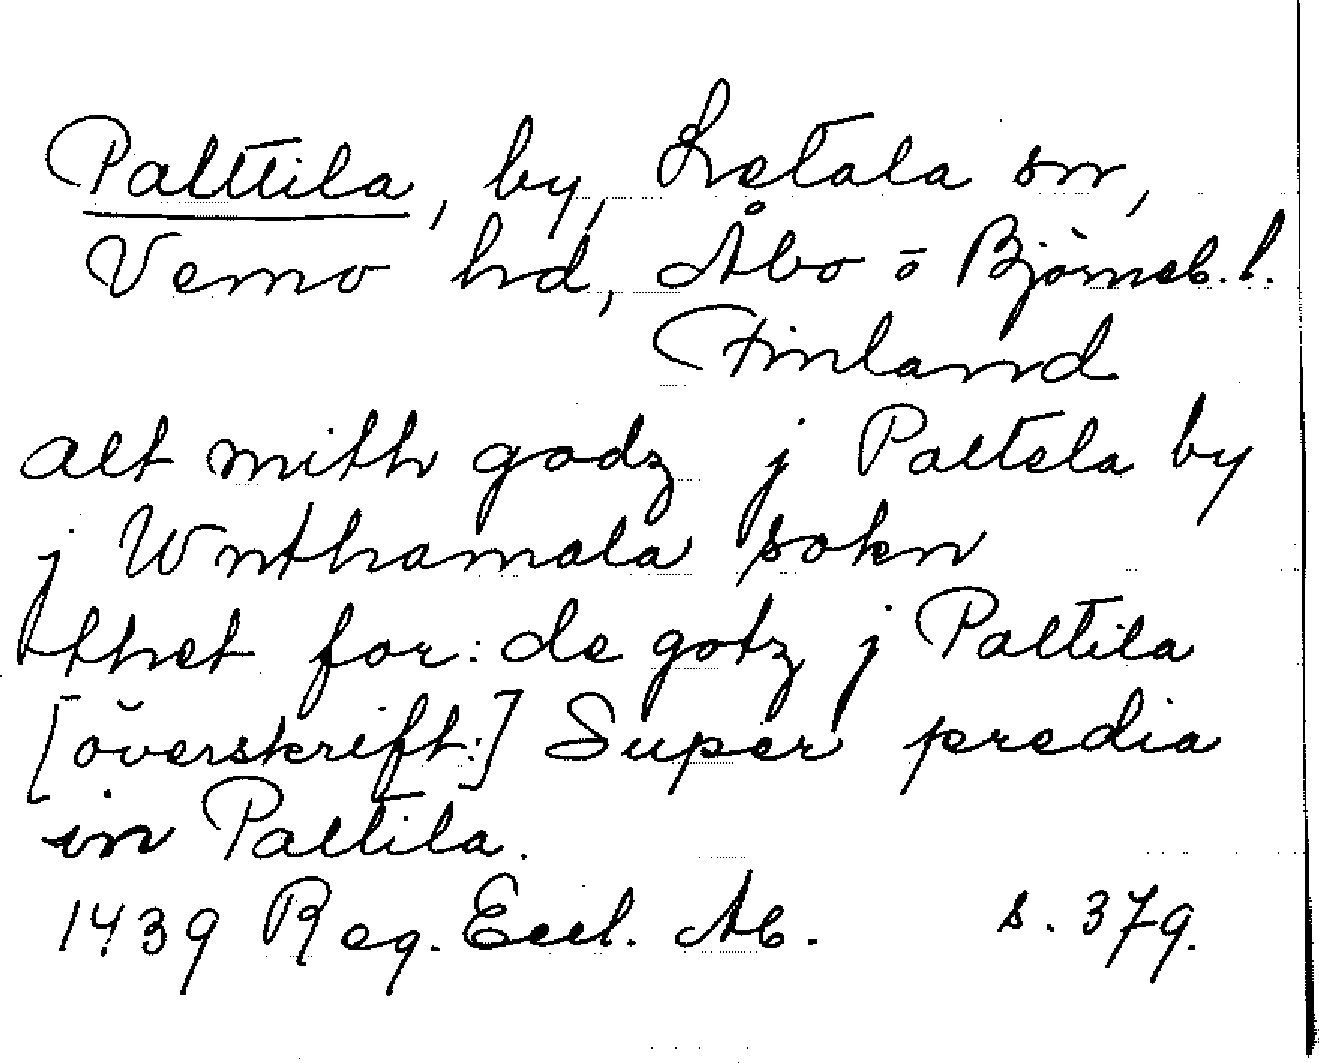 Palttila, by, Letala sn,
Vemo hd, Åbo o Björneb. l.
Finland
alt mith godz j Paltela by
j Wnthamala sokn
thet for: de gotz j Paltila
[överskrift:] Super predia
in Paltila.
1439 Reg. Eccl. Ab. s. 379.